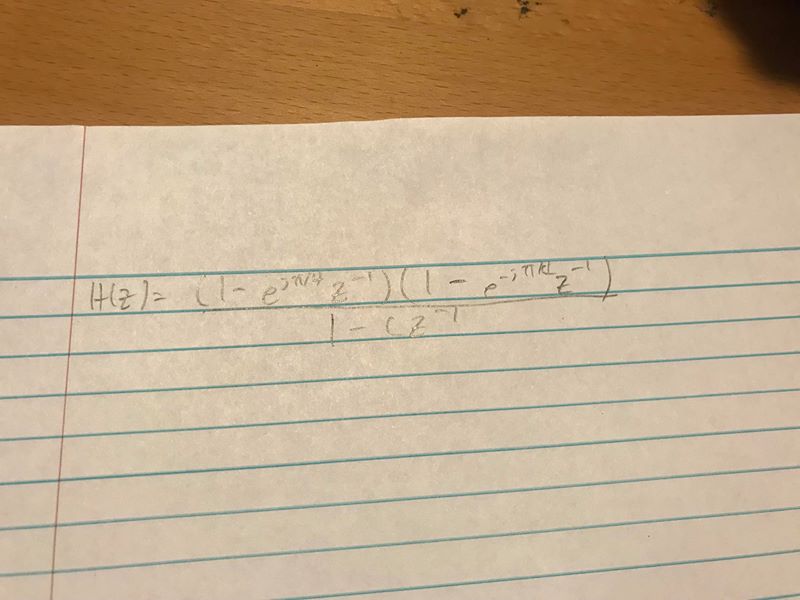 H(z) = (1 - e^{jπ/4} z^{-1})(1 - e^{-jπ/4} z^{-1})
1 - c z^{-1}